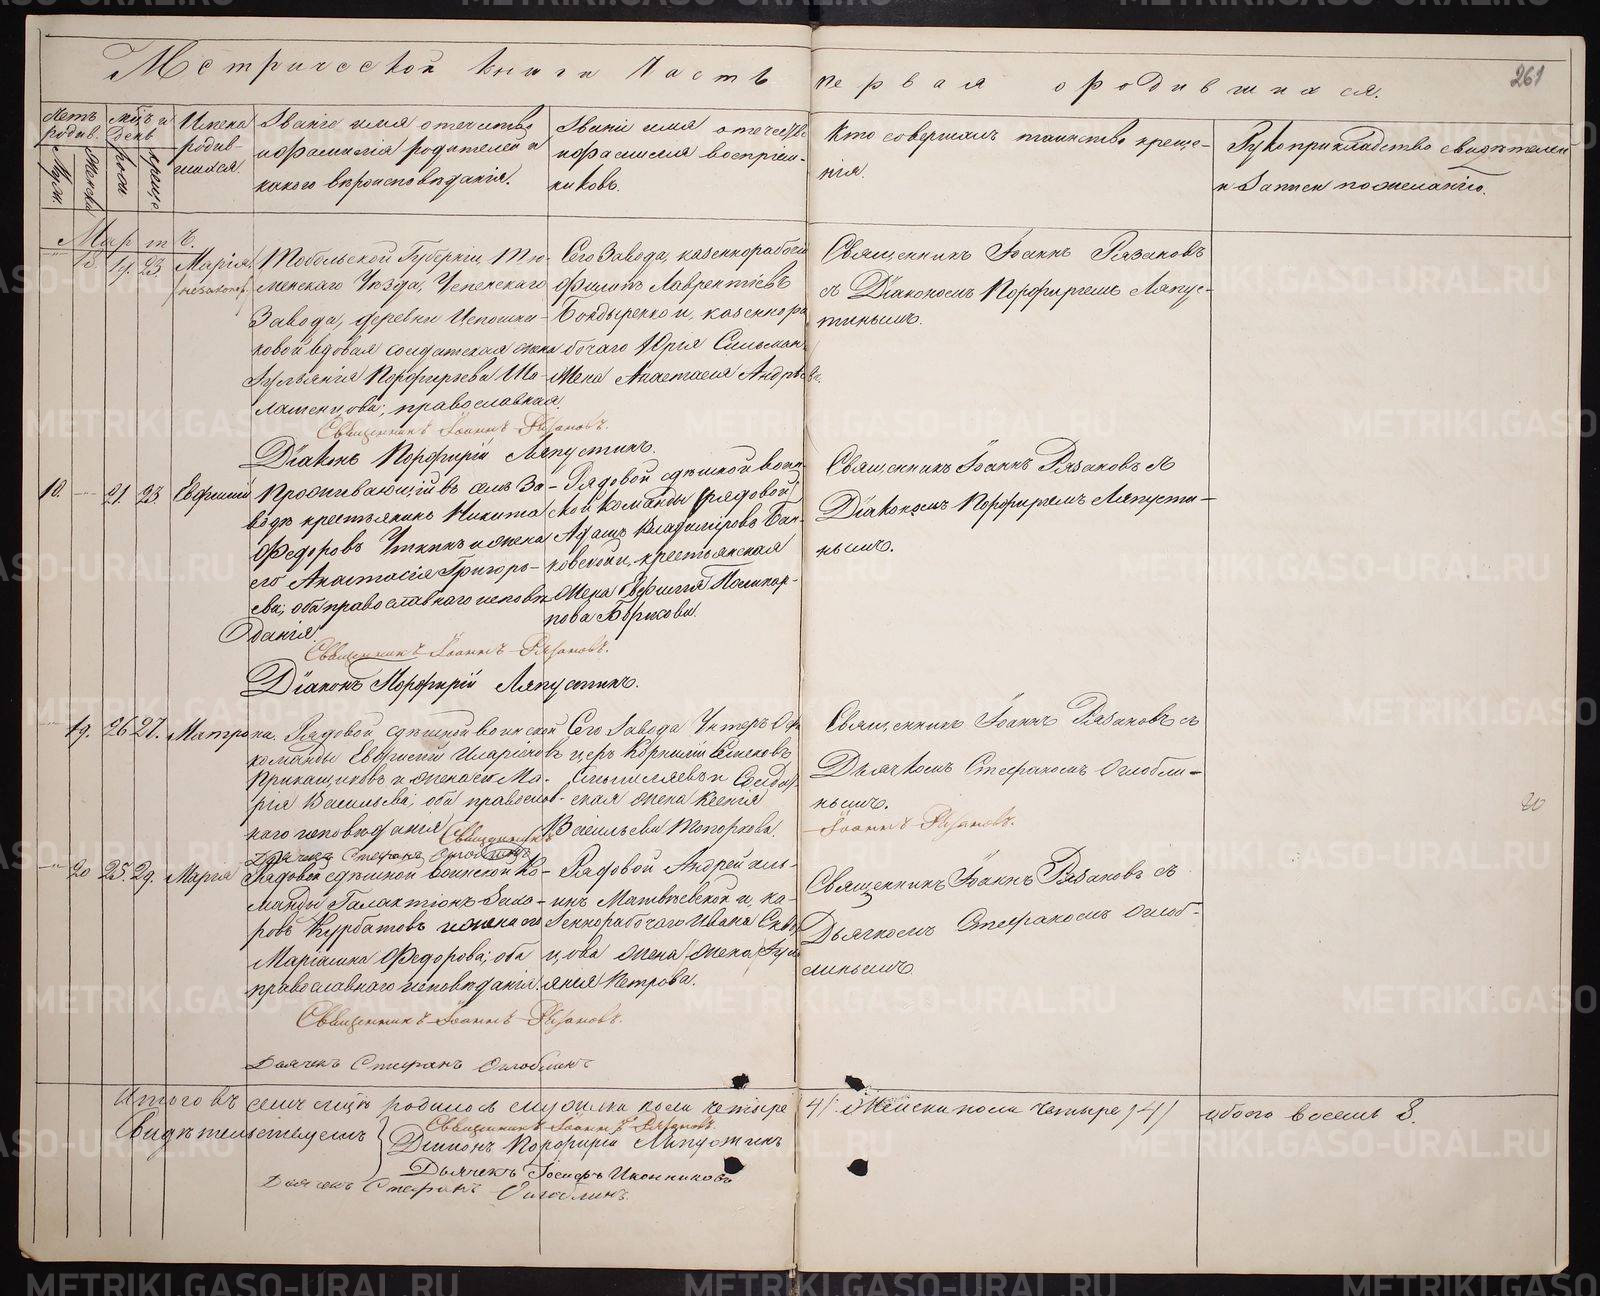 Метрической книги часть первая о родившихся.
261
Счетъ родив.
Муж.
Женска
Мцъ и день
рож
креще
Имена родившихся.
Званіе имя отечество
и фамилія родителей и
какого вѣроисповѣданія.
Званіе имя отечество
и фамилія воспріем-
никовъ.
Кто совершалъ таинство креще-
нія.
Рукоприкладство свидѣтелей
и записи по желанію.
Мартъ.
18. 19. 23. Марія.
Тобольской Губерніи, Тю-
менскаго Уѣзда, Успенскаго
Завода, деревни
вдовая солдатская жена
Порфирьева
православная.
Священникъ Іоаннъ Рязановъ.
Діаконъ Порфирій Ляпустинъ.
Сего Завода, казеннорабочій
Филипъ Лаврентіевъ
Бондыренко и, казеннора
бочаго Юрія
жена Анастасія Андрѣева.
Священникъ Іоаннъ Рязановъ
съ Діакономъ Порфиріемъ Ляпус-
тинымъ.
18. 21. 23. Евфимій
Проживающій въ семъ За-
водѣ крестьянинъ Никита
Федоровъ Уткинъ и жена
его Анастасія Григорь-
ева; оба православнаго исповѣ
данія.
Священникъ Іоаннъ Рязановъ.
Діаконъ Порфирій Ляпустинъ.
Рядовой здѣшной воин-
ской команды (рядовой)
Адамъ Владиміровъ Бан-
ковскій и, крестьянская
жена Евфимія Поликар-
пова Боркова.
Священникъ Іоаннъ Рязановъ съ
Діакономъ Порфиріемъ Ляпусти-
нымъ.
19. 26. 27. Матрона.
Рядовой здѣшной воинской
команды Евфимій Иларіоновъ
Прикащиковъ и жена его Ма-
рія Васильева; оба православ-
наго исповѣданія.
Священникъ
Дьячекъ Стефанъ Оглоблинъ
Сего Завода Унтеръ Офи
церъ Корнилій
и Солдат
ская жена Ксенія
Васильева Топоркова.
Священникъ Іоаннъ Рязановъ съ
Дьячкомъ Стефаномъ Оглобли-
нымъ.
Іоаннъ Рязановъ.
20
20 25. 29. Марія
Рядовой здѣшной воинской ко-
манды Галактіонъ Заха-
ровъ Курбатовъ и жена его
Маріамна Федорова; оба
православнаго исповѣданія.
Священникъ Іоаннъ Рязановъ.
Дьячекъ Стефанъ Оглоблинъ
Рядовой Андрей
Матвѣевской и, ка-
зеннорабочаго Ивана Сквор
цова жена жена Іулі
анія Петрова.
Священникъ Іоаннъ Рязановъ съ
Дьячкомъ Стефаномъ Оглоб-
линымъ.
Итого въ семъ мцѣ родилось мужска пола четыре /4/ Женска пола Четыре /4/ обоего восемь 8.
Свидѣтельствуемъ
Священникъ Іоаннъ Рязановъ.
Діаконъ Порфирій Ляпустинъ
Дьячекъ Іосифъ Иконниковъ
Дьячекъ Стефанъ Оглоблинъ.
METRIKI.GASO-URAL.RU